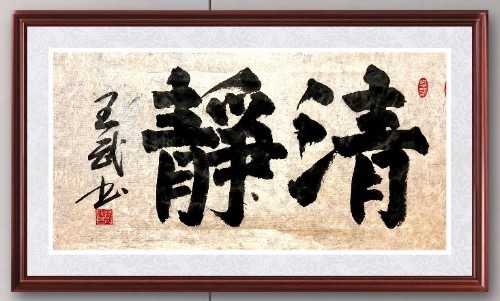 清靜
王武书